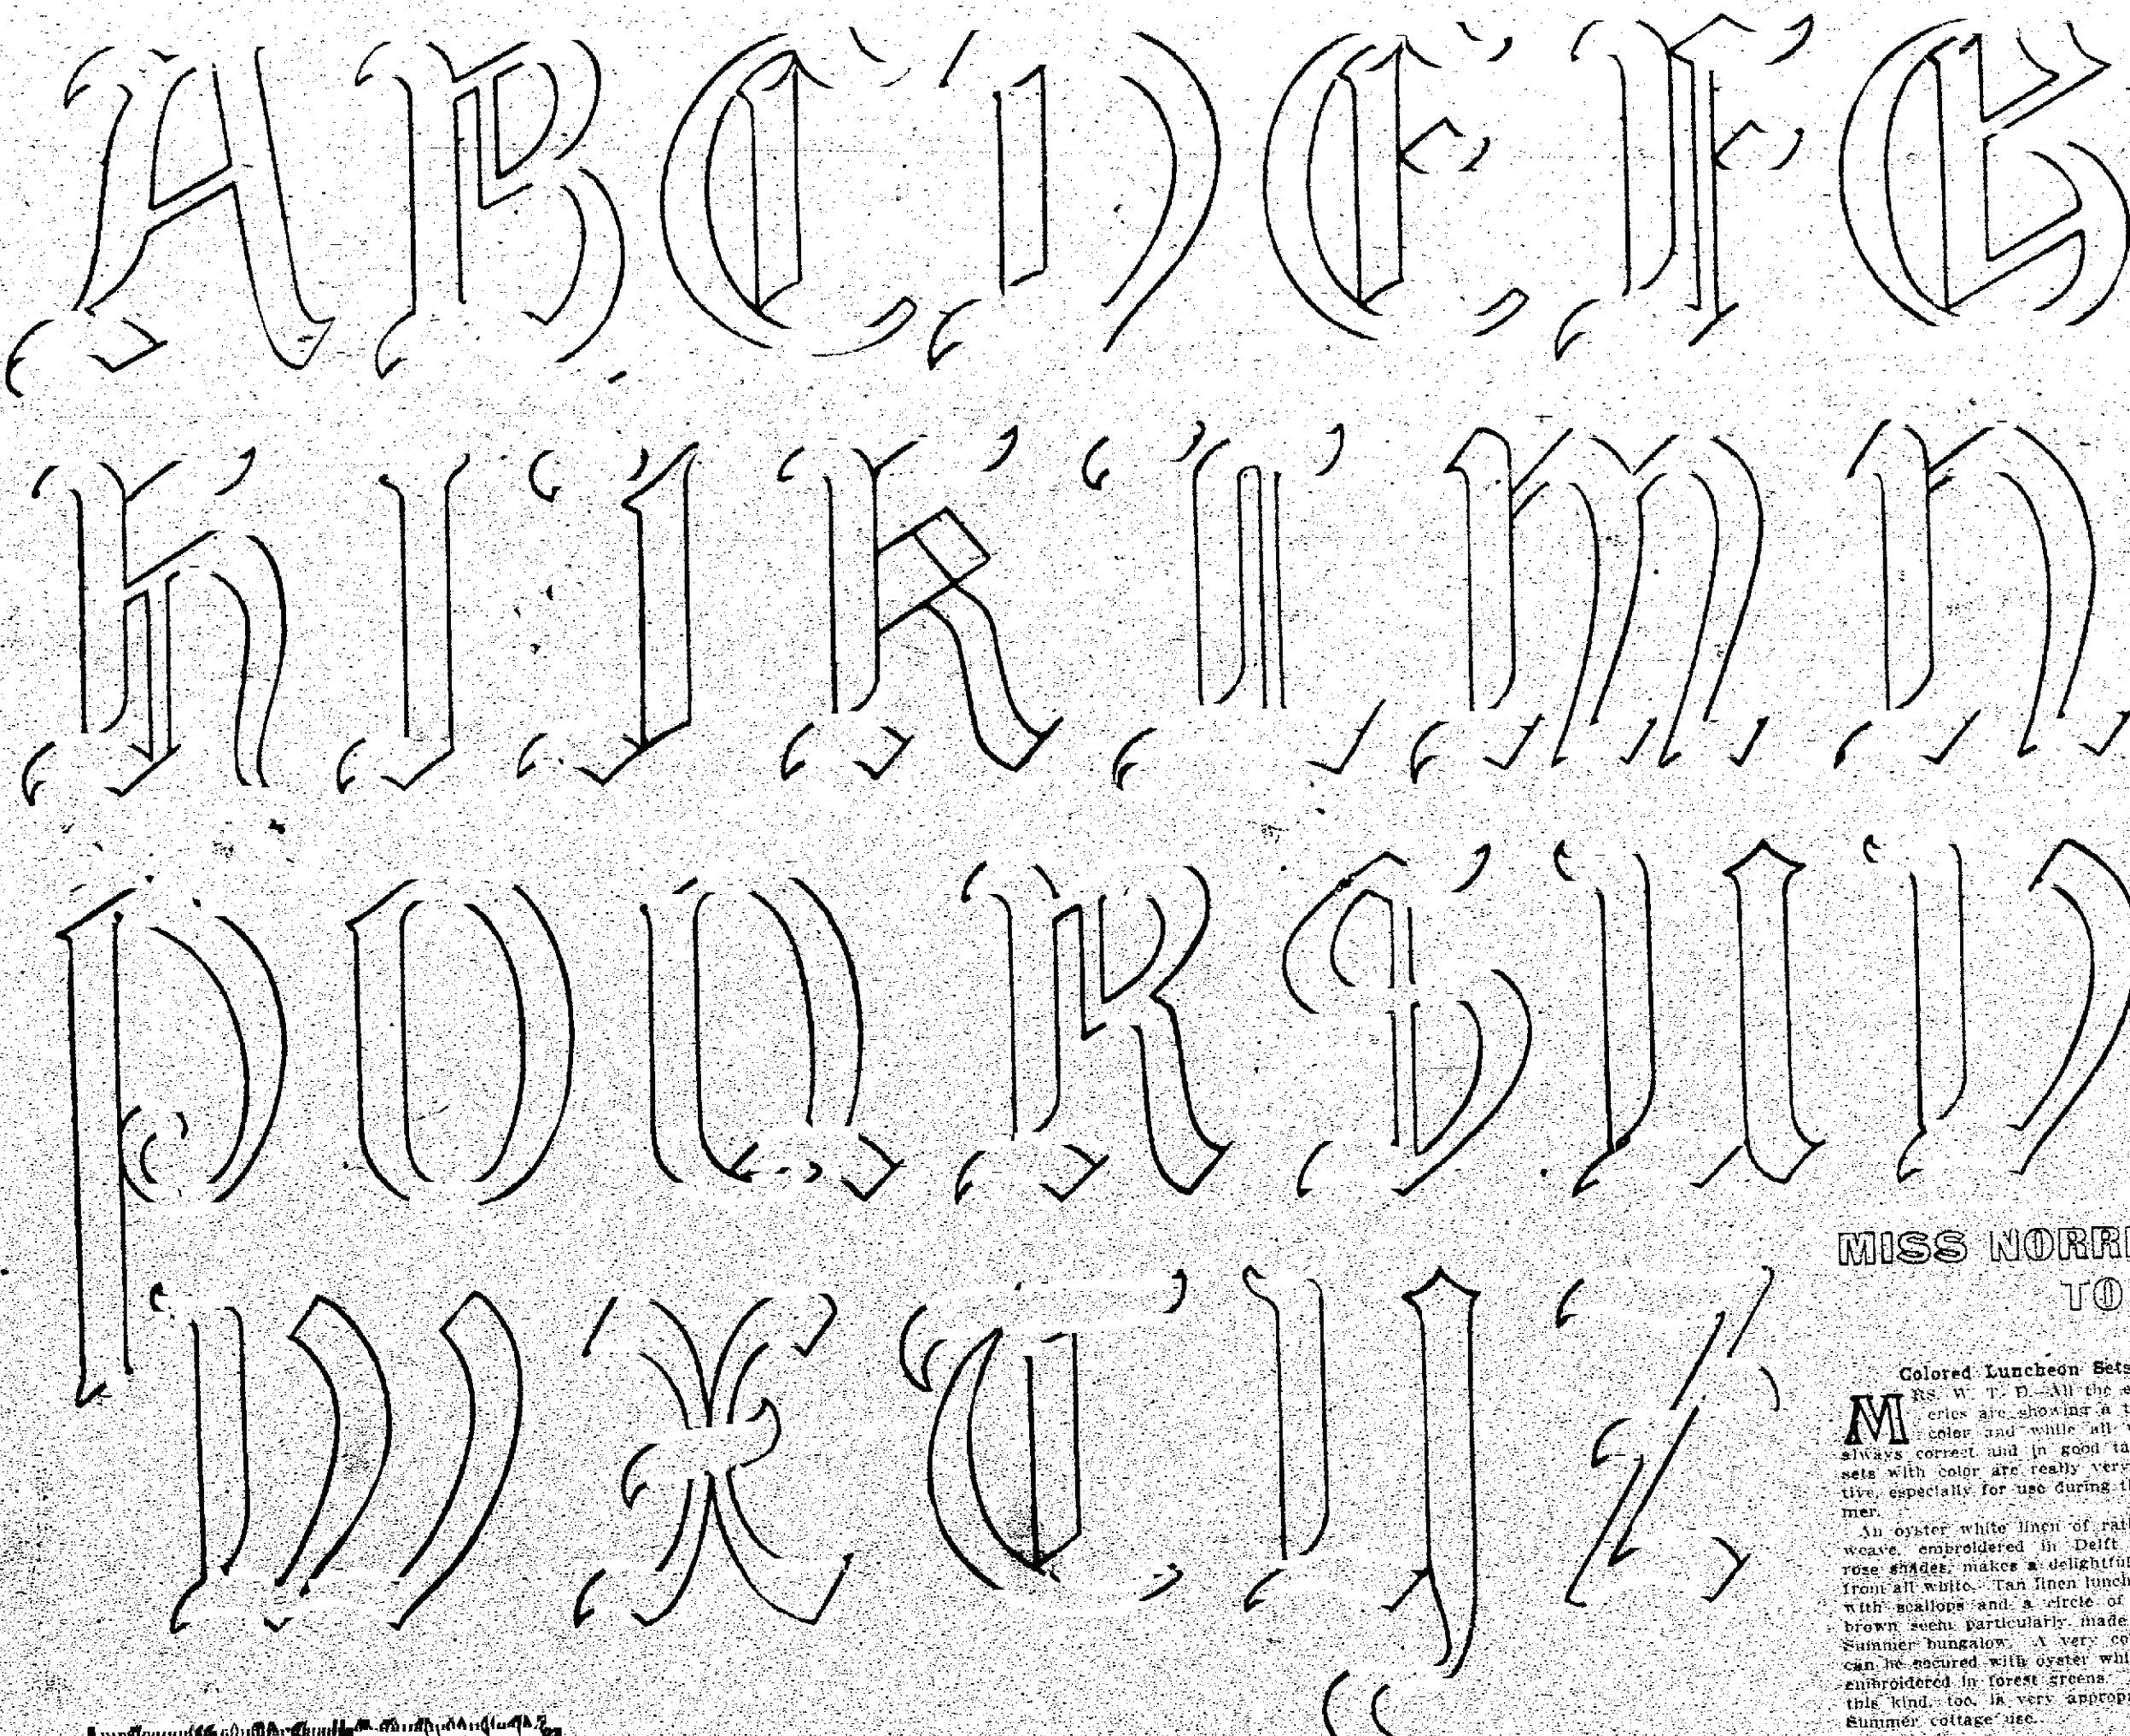 A B C D E F G
H I J K L M N
P O Q R S U V
W X T Y Z
MISS NORRI
TO
Colored Luncheon Sets
MRS. W. T. D.—All the e
eries are showing a t
color and while all
always correct and in good ta
sets with color are really very
tive, especially for use during th
mer.
An oyster white linen of rat
weave, embroidered in Delft
rose shades, makes a delightful
from all white. Tan linen lunch
with scallops and a circle of
brown seem particularly made
Summer bungalow. A very co
can be secured with oyster whi
embroidered in forest greens.
this kind, too, is very appropr
Summer cottage use.